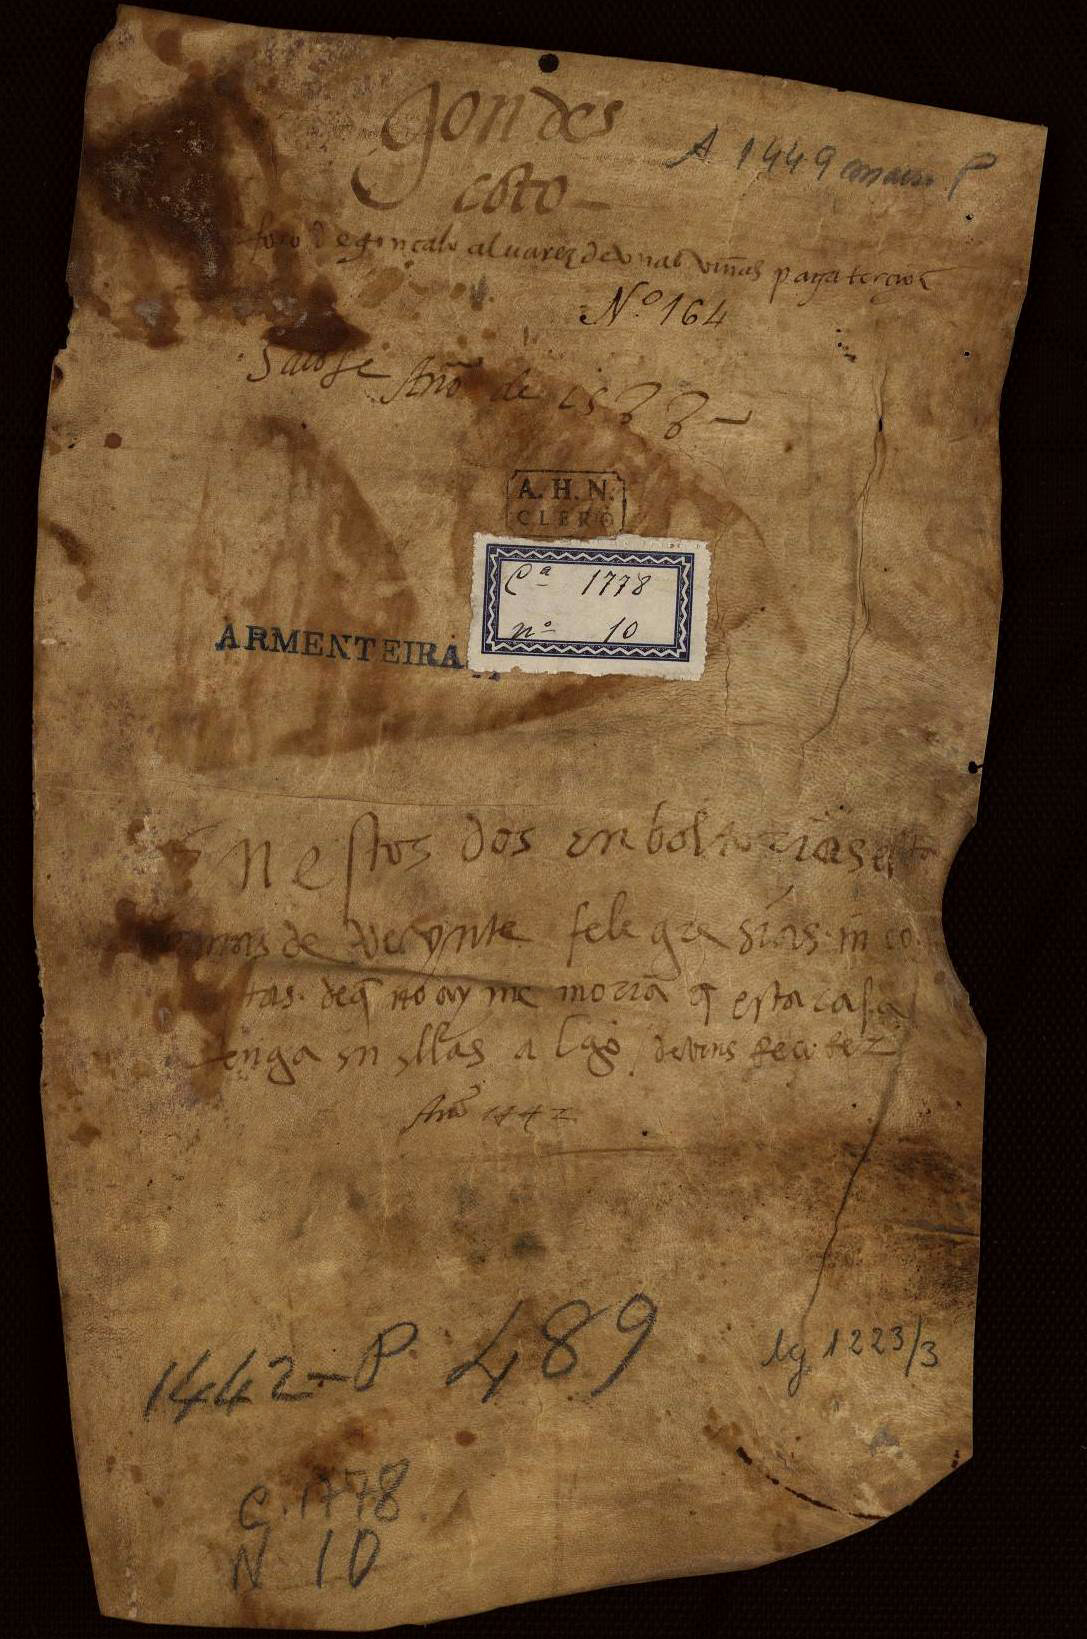 Gondes
coto
A 1449
foro de gonçalo aluarez de vnas viñas paga tercio
N.º 164
Año de 1588
A. H. N.
CLERO
Cª 1778
nº 10
ARMENTEIRA
Enestos dos enboltorios
de veynte felegresias in co
tas de q̃ no ay memoria q̃ esta casa
tenga en ellas algo
Año 1442
1442-P. 489
lg 1223/3
C. 1778
N 10